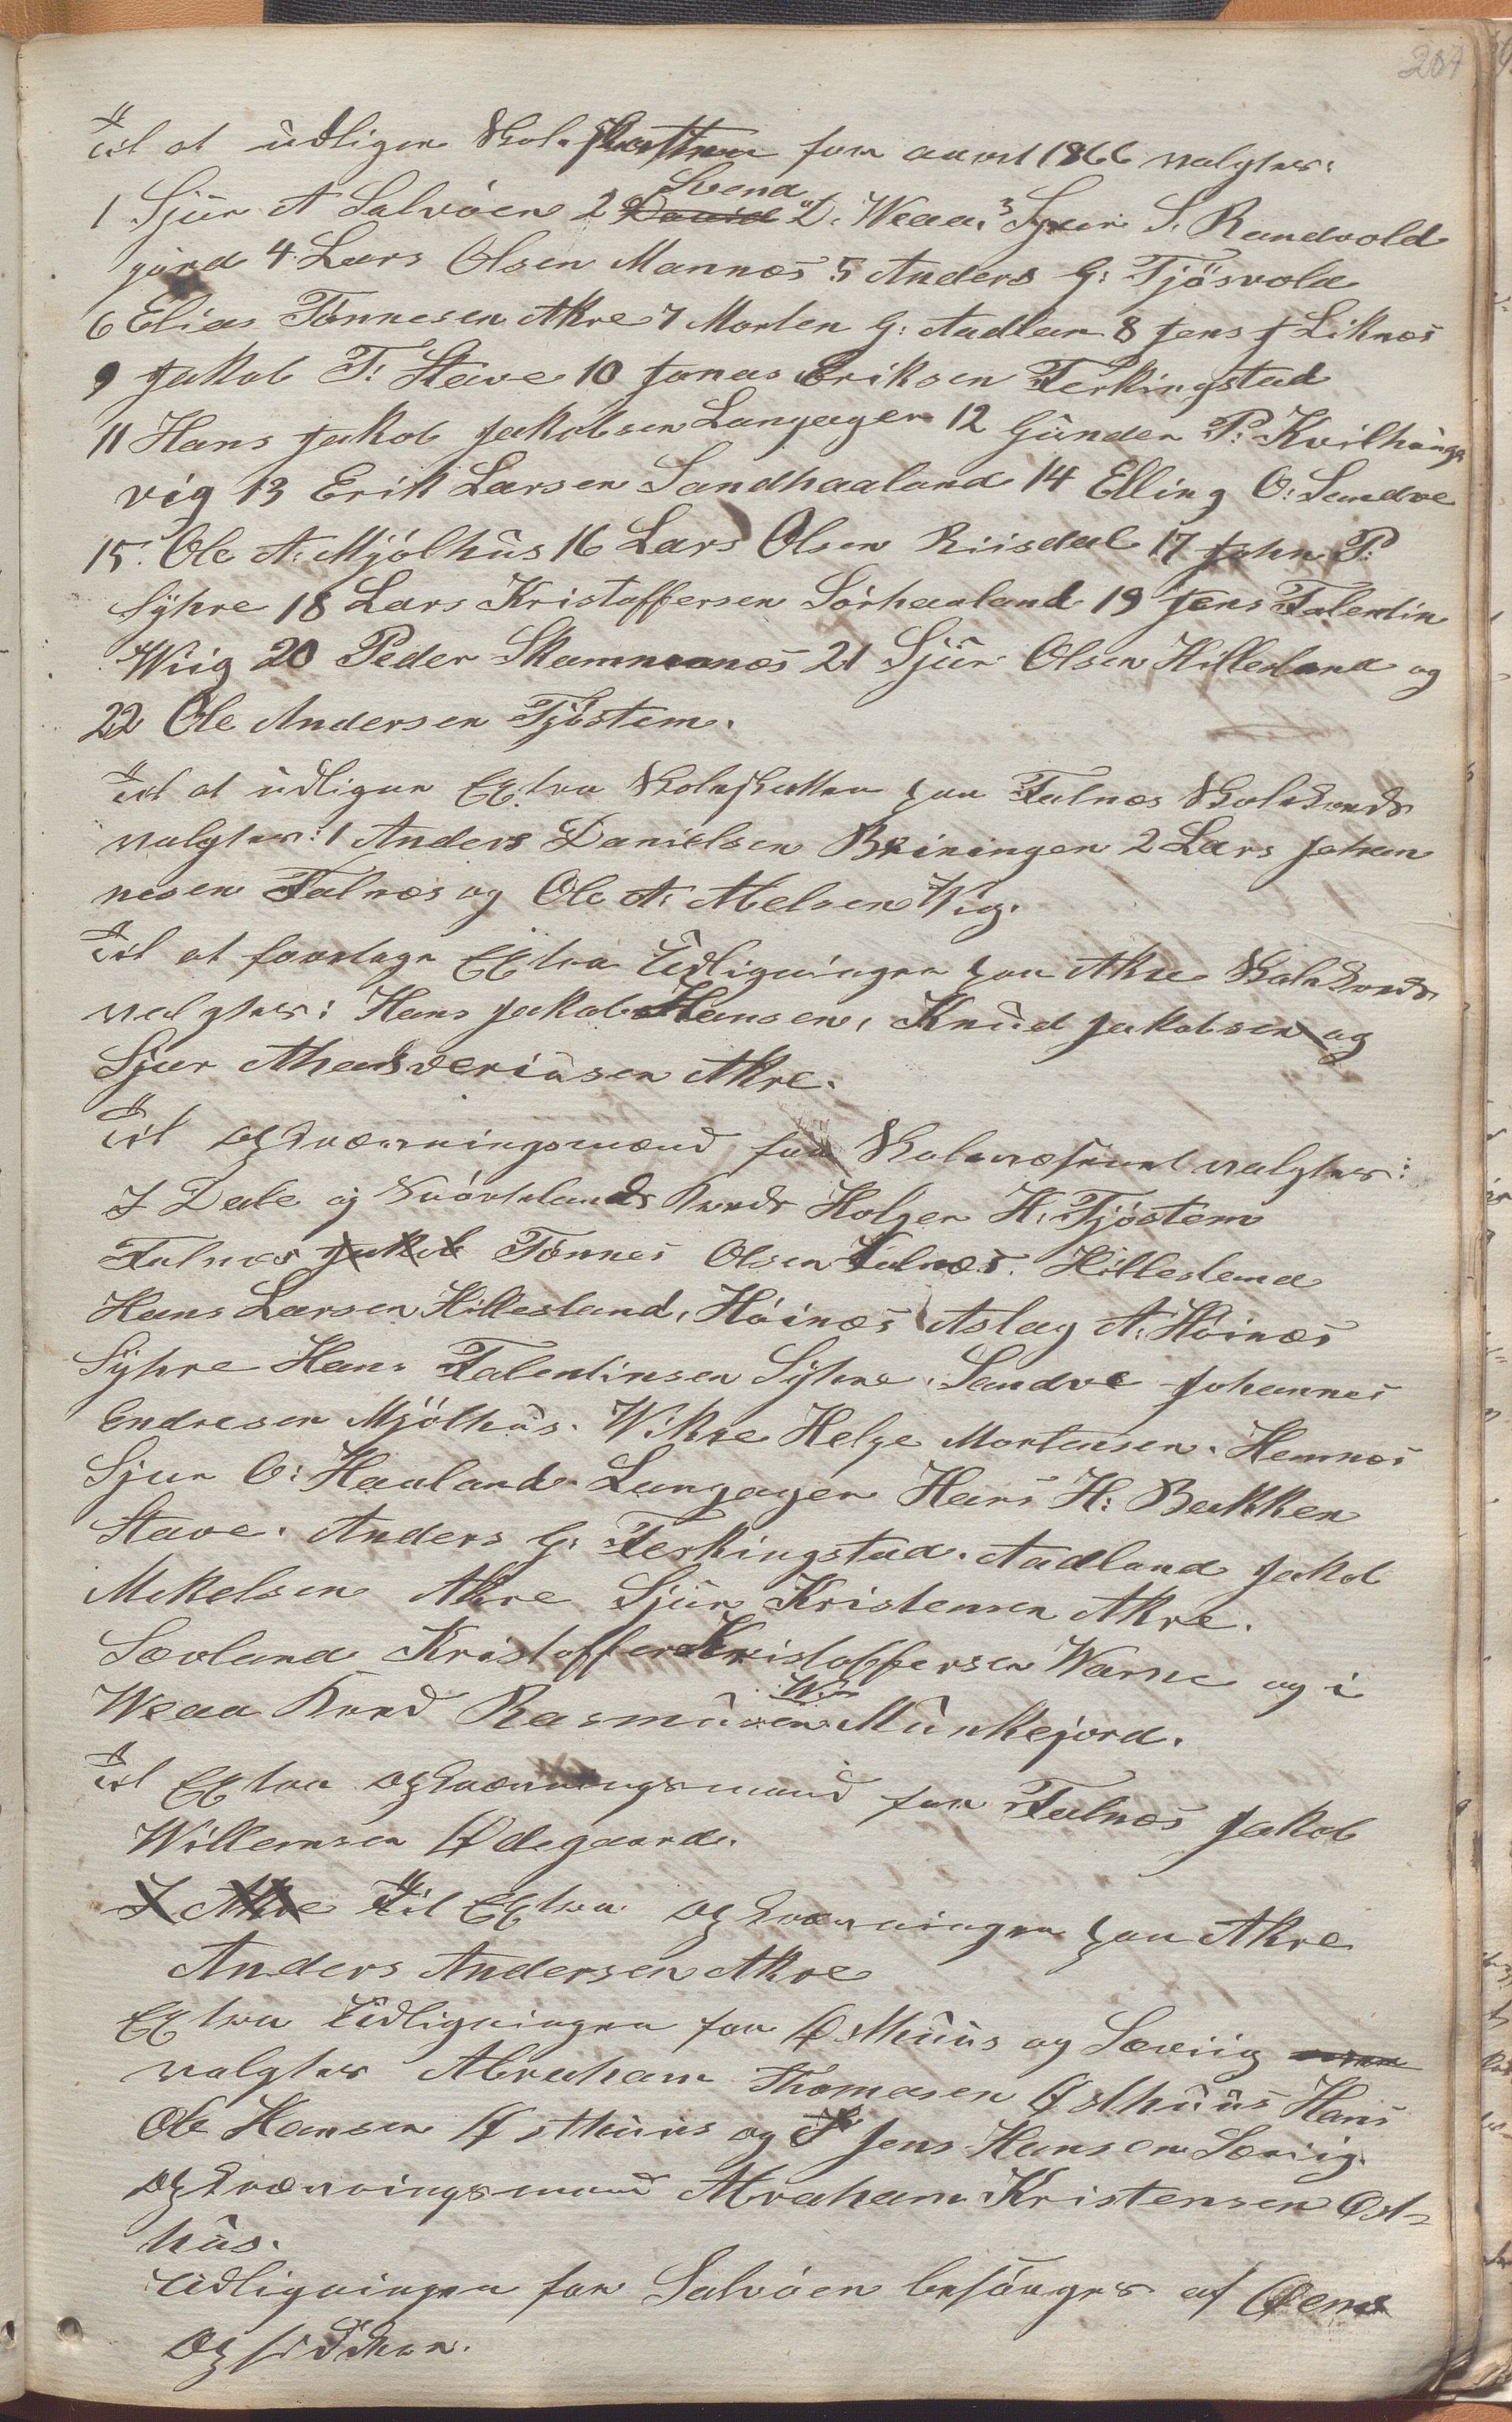 207
Til at udligne Skoleskatten for aaret 1866 valgtes:
1 Sjur A Salvöen 2 David Svend D. Weaa. 3 Sjur S. Randvold
gjerd 4. Lars Olsen Mannæs 5 Anders G: Tjösvold
6 Elias Tönnesen Akre 7 Morten G: Aadlan 8 Jens J Liknæs
9 Jakob T: Stave 10 Jonas Eriksen Ferkingstad
11 Hans Jakob Jakobsen Langager 12 Gunder P: Kvilhaugs
vig 13 Erik Larsen Sandhaaland 14 Elling O: Sandve
15. Ole A: Mjölhus 16 Lars Olsen Riisdal 17 John P:
Syhre 18 Lars Kristoffersen Sörhaaland 19 Jens Falentin
Wiig 20 Peder Skamnæs 21 Sjur Olsen Hillesland og
22 Ole Andersen Tjöstem.
Til at udligne Extra Skoleskatten paa Falnæs Skolekreds
valgtes: 1 Anders Danielsen Beiningen 2 Lars Johan
nesen Falnæs og Ole A: Melsen Wig.
Til at foretage Extra Udligningen paa Akre Skolekreds
valgtes: Hans Jakob Hansen, Knud Jakobsen og
Sjur Ahasveriusen Akre.
Til Opkrævningsmænd for Skolevæsenet valgtes:
I Dale og Kvörtelands Kreds Holger H: Tjöstem
Falnæs Jakob Tönnes Olsen Falnæs. Hillesland
Hans Larsen Hillesland, Höinæs Aslag A: Höinæs
Syhre Hans Falentinsen Syhre. Sandve Johannes
Endresen Mjölhus. Wikre Helge Mortensen. Hemnæs
Sjur O: Haaland. Langager Hans H: Bakken
Stave. Anders G: Ferkingstad. Aadland Jakob
Mikelsen Akre Sjur Kristensen Akre.
Sævland Kristoffer Kristoffersen Warne og i
Weaa Kreds Rasmus W: Munkejord.
Til Extra Opkrævningsmand for Falnæs Jakob
Willemsen Ødegaard.
I Akre Til Extra Opkrævningen paa Akre
Anders Andersen Akre
Extra Udligningen for Østhuus og Sæviig
valgtes Abraham Thomasen Østhuus Hans
Ole Hansen Østhuus og Jens Hansen Sæviig.
Opkrævningsmand Abraham Kristensen Øst-
hus.
Udligningen for Salvöen besörges af Øens
Opsidder.